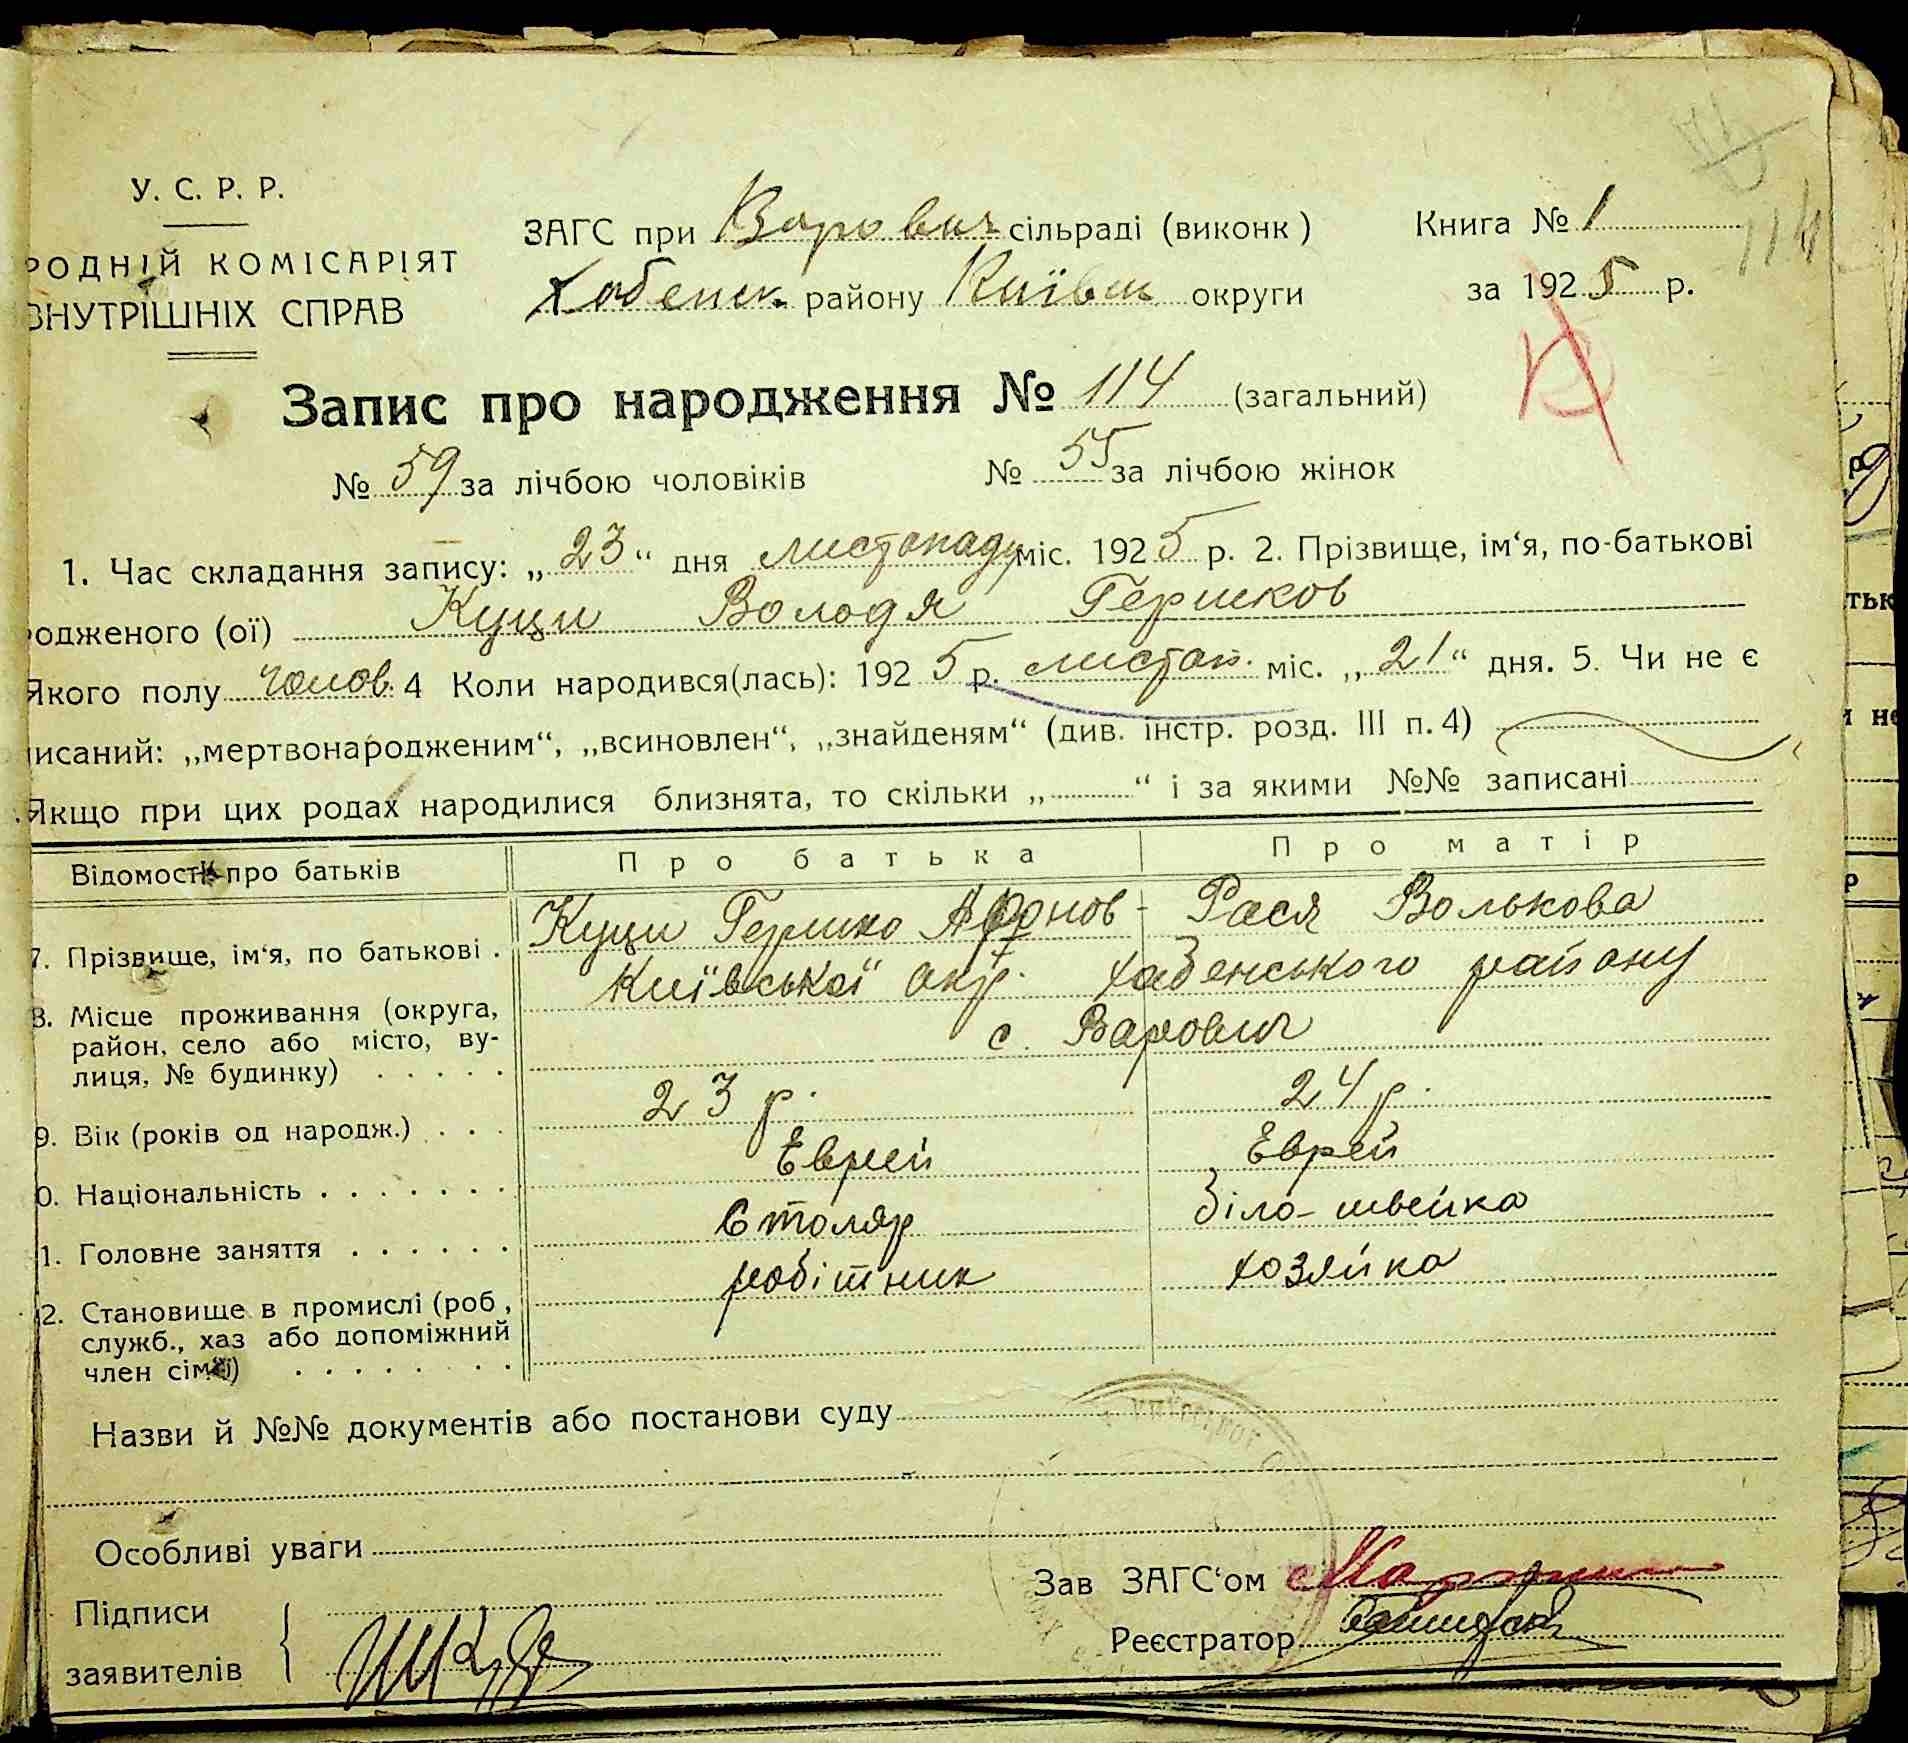 У. С. Р. Р.
РОДНІЙ КОМІСАРІЯТ
ВНУТРІШНІХ СПРАВ
ЗАГС при Варович сільраді (виконк)
Хабенськ. району Київськ округи
Книга № 1
за 1925 р.
114
Запис про народження № 114 (загальний)
№ 59 за лічбою чоловіків № 55 за лічбою жінок
1. Час складання запису: „23“ дня листопаду міс. 1925 р. 2. Прізвище, ім‘я, по-батькові
одженого (ої) Куци Володя Гершков
Якого полу чолов. 4 Коли народився(лась): 1925 р. листоп. міс. „21“ дня. 5. Чи не є
исаний: „мертвонародженим“, „всиновлен“, „знайденям“ (див. інстр. розд. III п. 4)
Якщо при цих родах народилися близнята, то скільки „ “ і за якими №№ записані
Відомості про батьків Про батька Про матір
7. Прізвище, ім‘я, по батькові . Куци Гершко Аронов - Рася Волькова
8. Місце проживання (округа, район, село або місто, вулиця, № будинку) Київської окр. Хабенського району
с. Варович
9. Вік (років од народж.) 23 р. 24 р.
0. Національність Еврей Еврей
1. Головне заняття Столяр Біло-швейка
2. Становище в промислі (роб, служб., хаз або допоміжний член сім‘ї) робітник хозяйка
Назви й №№ документів або постанови суду
Особливі уваги
Зав ЗАГС‘ом
Підписи
заявителів
Реєстратор